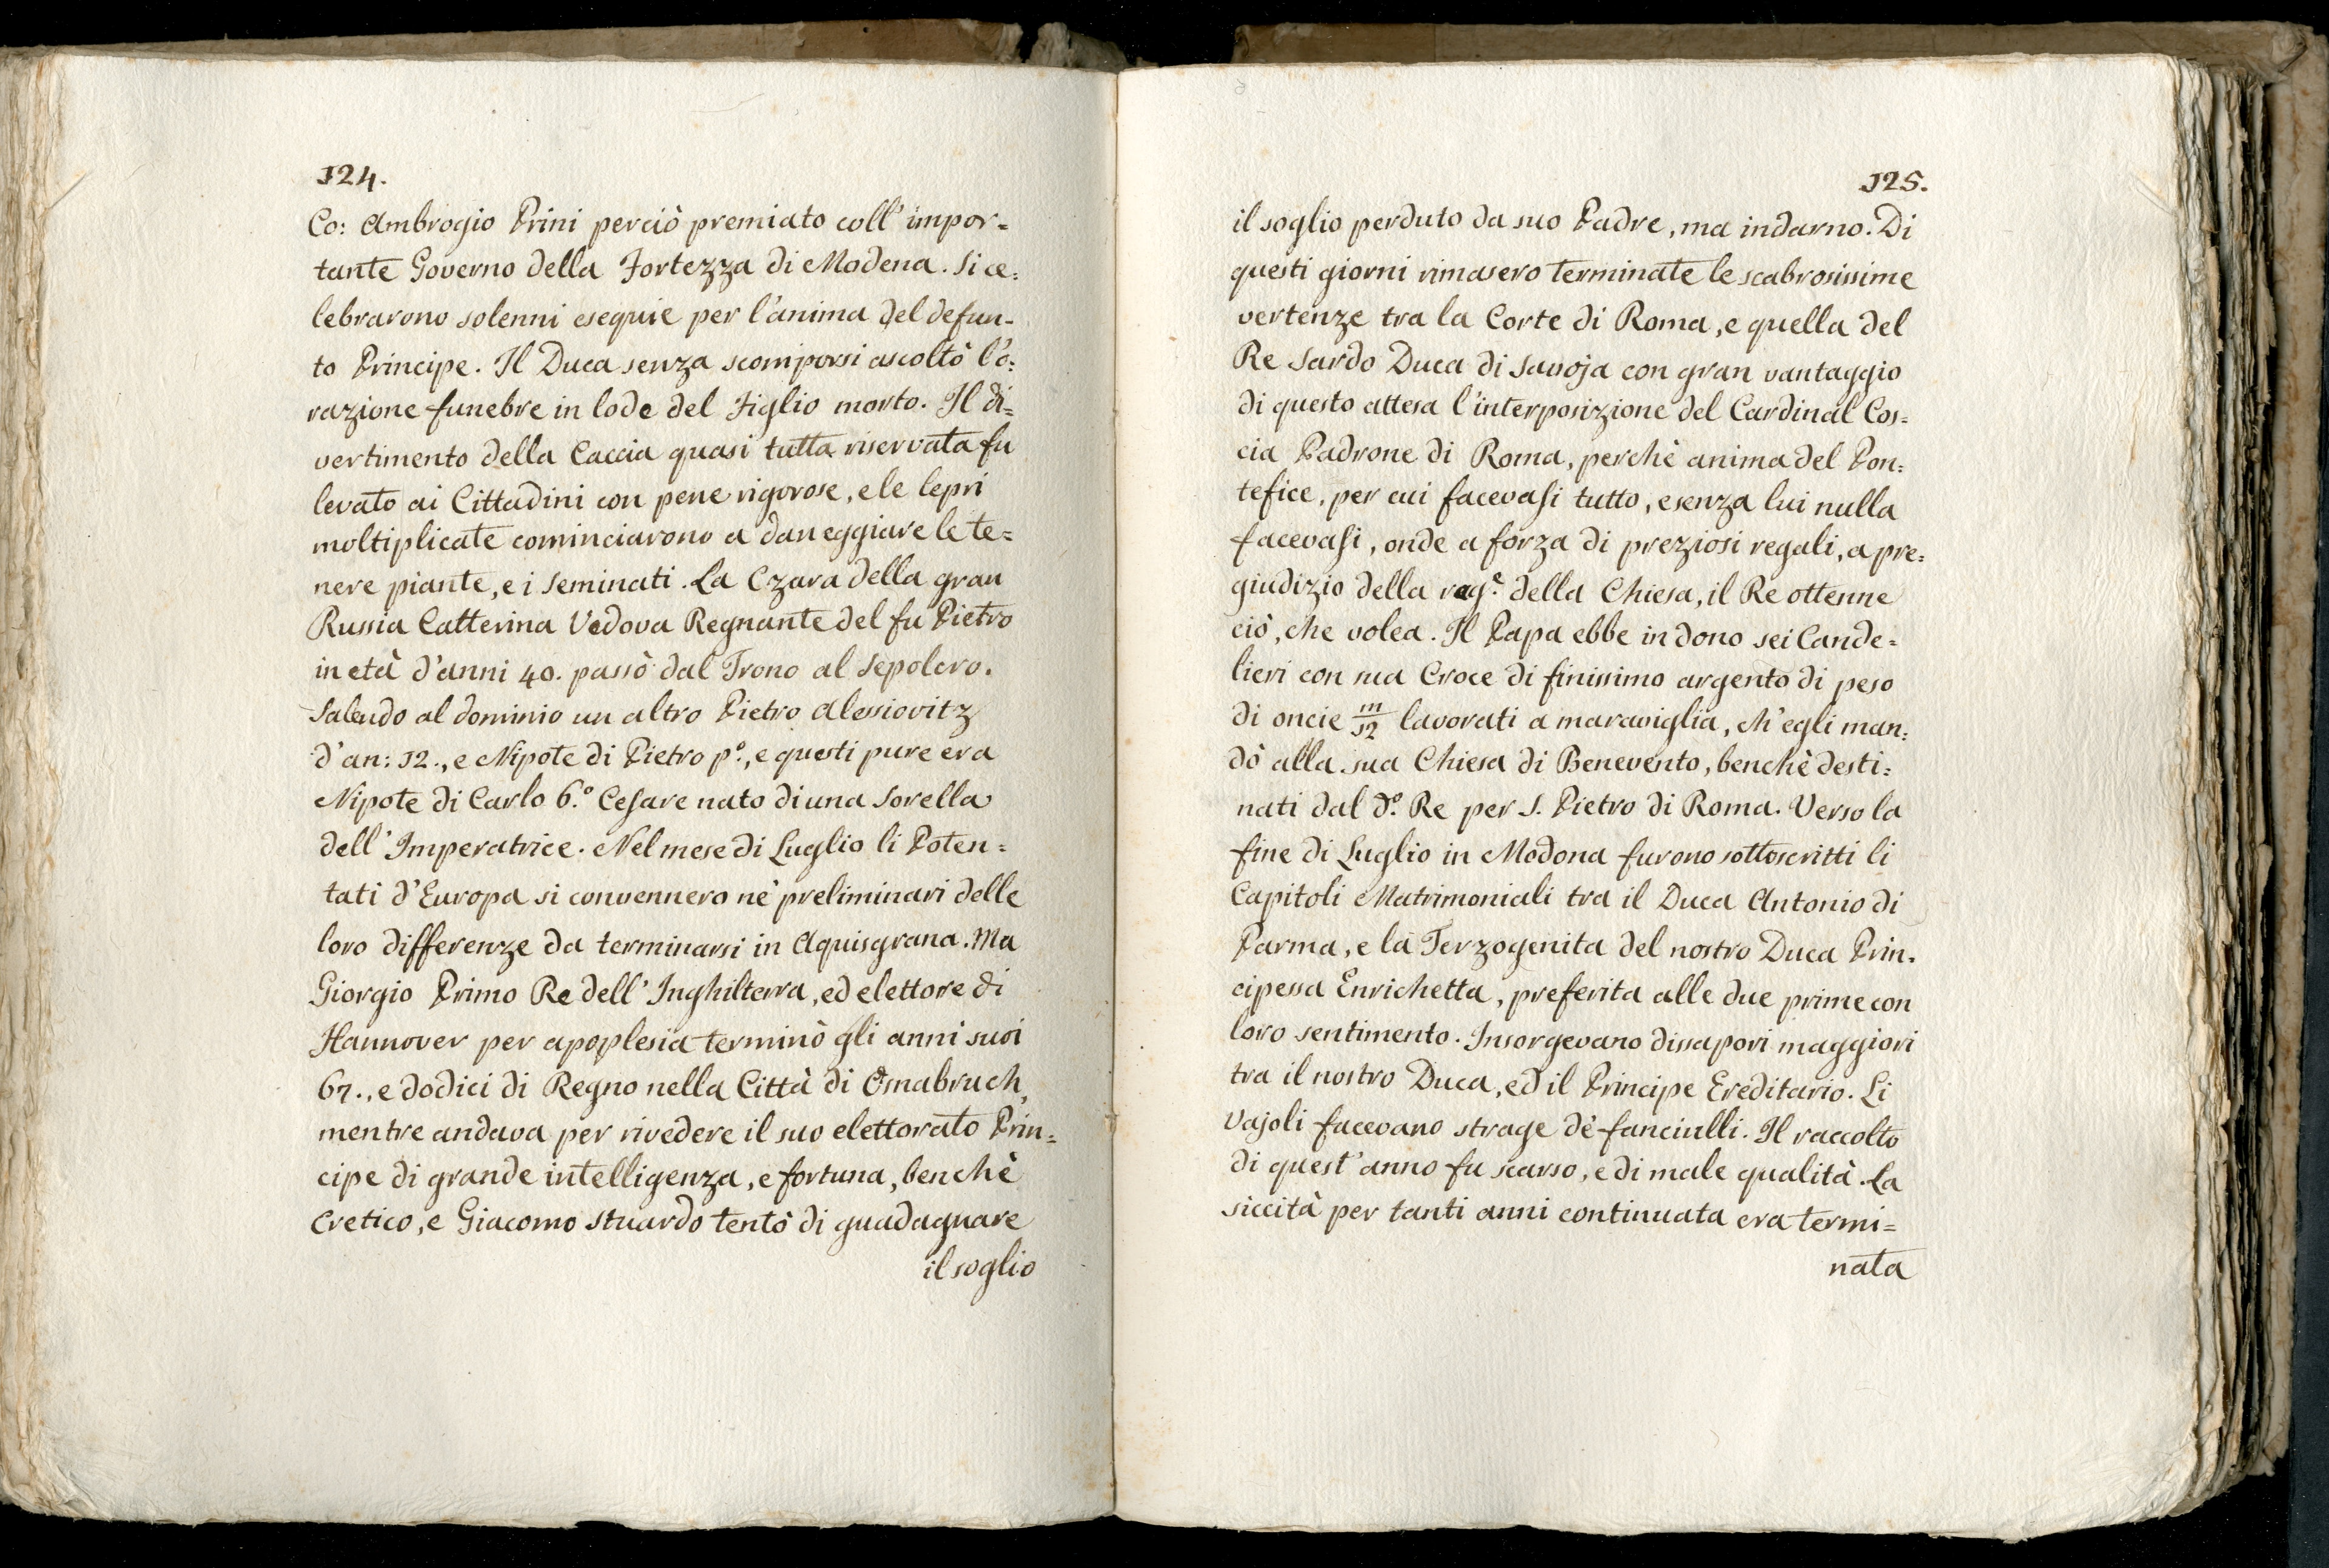 124.
Co: Ambrogio Prini perciò premiato coll' impor=
tante Governo della Fortezza di Modena. Si ce=
lebrarono solenni esequie per l'anima del defun-
to Principe. Il Duca senza scomporsi ascoltò l'o=
razione funebre in lode del Figlio morto. Il di=
vertimento della Caccia quasi tutta riservata fu
levato ai Cittadini con pene rigorose, e le lepri
moltiplicate cominciarono a daneggiare le te=
nere piante, e i Seminati. La Czara della gran
Russia Catterina Vedova Regnante del fu Pietro
in età d'anni 40. passò dal Trono al Sepolcro.
Salendo al dominio un altro Pietro Alessiovitz
d'an: 12., e Nipote di Pietro p.º, e questi pure era
Nipote di Carlo 6.º Cesare nato di una Sorella
dell' Imperatrice. Nel mese di Luglio li Poten=
tati d'Europa si convennero nè preliminari delle
loro differenze da terminarsi in Aquisgrana. Ma
Giorgio Primo Re dell' Inghilterra, ed elettore di
Hannover per apoplesia terminò gli anni suoi
67., e dodici di Regno nella Città di Osnabruch,
mentre andava per rivedere il suo elettorato Prin=
cipe di grande intelligenza, e fortuna, benchè
Eretico, e Giacomo Stuardo tentò di guadagnare
il soglio
125.
il soglio perduto da suo Padre, ma indarno. Di
questi giorni rimasero terminate le scabrosissime
vertenze tra la Corte di Roma, e quella del
Re Sardo Duca di Savoja con gran vantaggio
di questo attesa l'interposizione del Cardinal Cos=
cia Padrone di Roma, perchè anima del Pon=
tefice, per cui facevasi tutto, e senza lui nulla
facevasi, onde a forza di preziosi regali, a pre=
giudizio della rag.e della Chiesa, il Re ottenne
ciò, che volea. Il Papa ebbe in dono sei Cande=
lieri con sua Croce di finissimo argento di peso
di oncie m/12 lavorati a maraviglia, ch'egli man=
dò alla sua Chiesa di Benevento, benchè desti=
nati dal d.º Re per S. Pietro di Roma. Verso la
fine di Luglio in Modona furono sottoscritti li
Capitoli Matrimoniali tra il Duca Antonio di
Parma, e la Terzogenita del nostro Duca Prin-
cipessa Enrichetta, preferita alle due prime con
loro sentimento. Insorgevano dissapori maggiori
tra il nostro Duca, ed il Principe Ereditario. Li
Vajoli facevano strage dè fanciulli. Il raccolto
di quest' anno fu scarso, e di male qualità. La
siccità per tanti anni continuata era termi=
nata